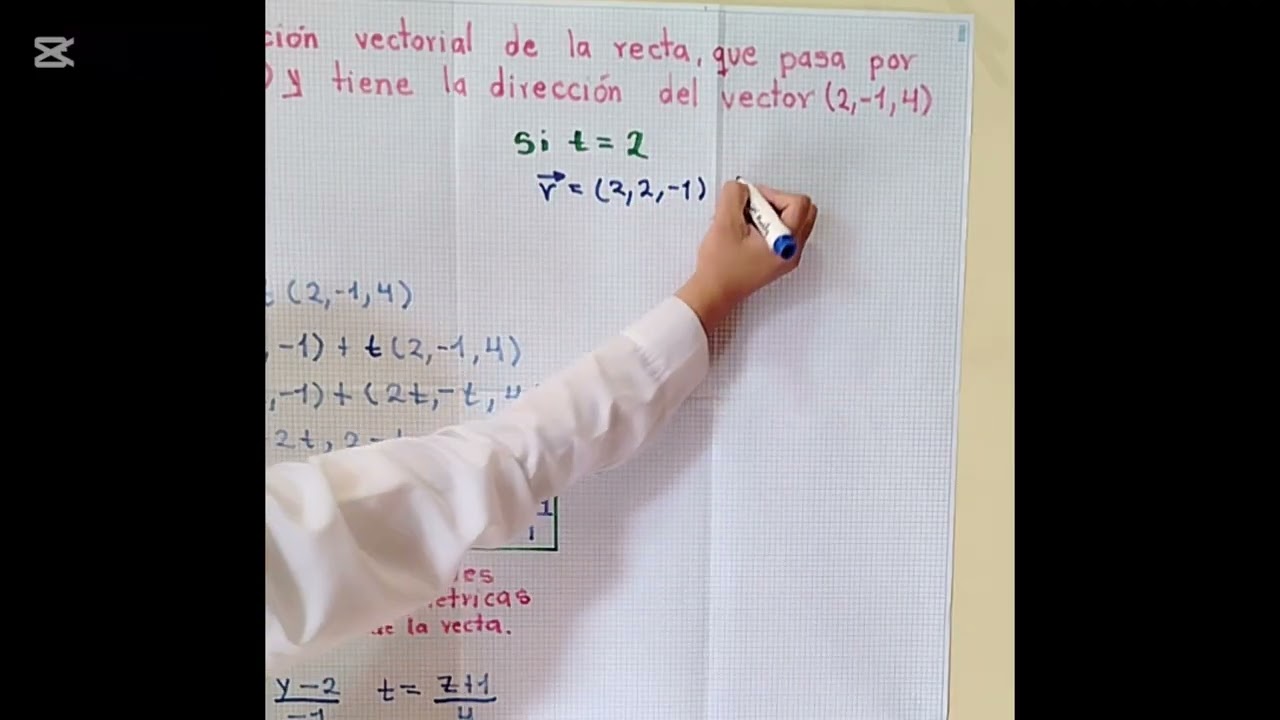 ción vectorial de la recta, que pasa por
) y tiene la dirección del vector (2,-1,4)
Si t = 2
r⃗ = (2,2,-1)
t (2,-1,4)
, -1) + t (2,-1,4)
,-1) + (2t,-t, 4
2t, 2-t
1
1
les
etricas
de la recta.
y-2/-1 t = z+1/4